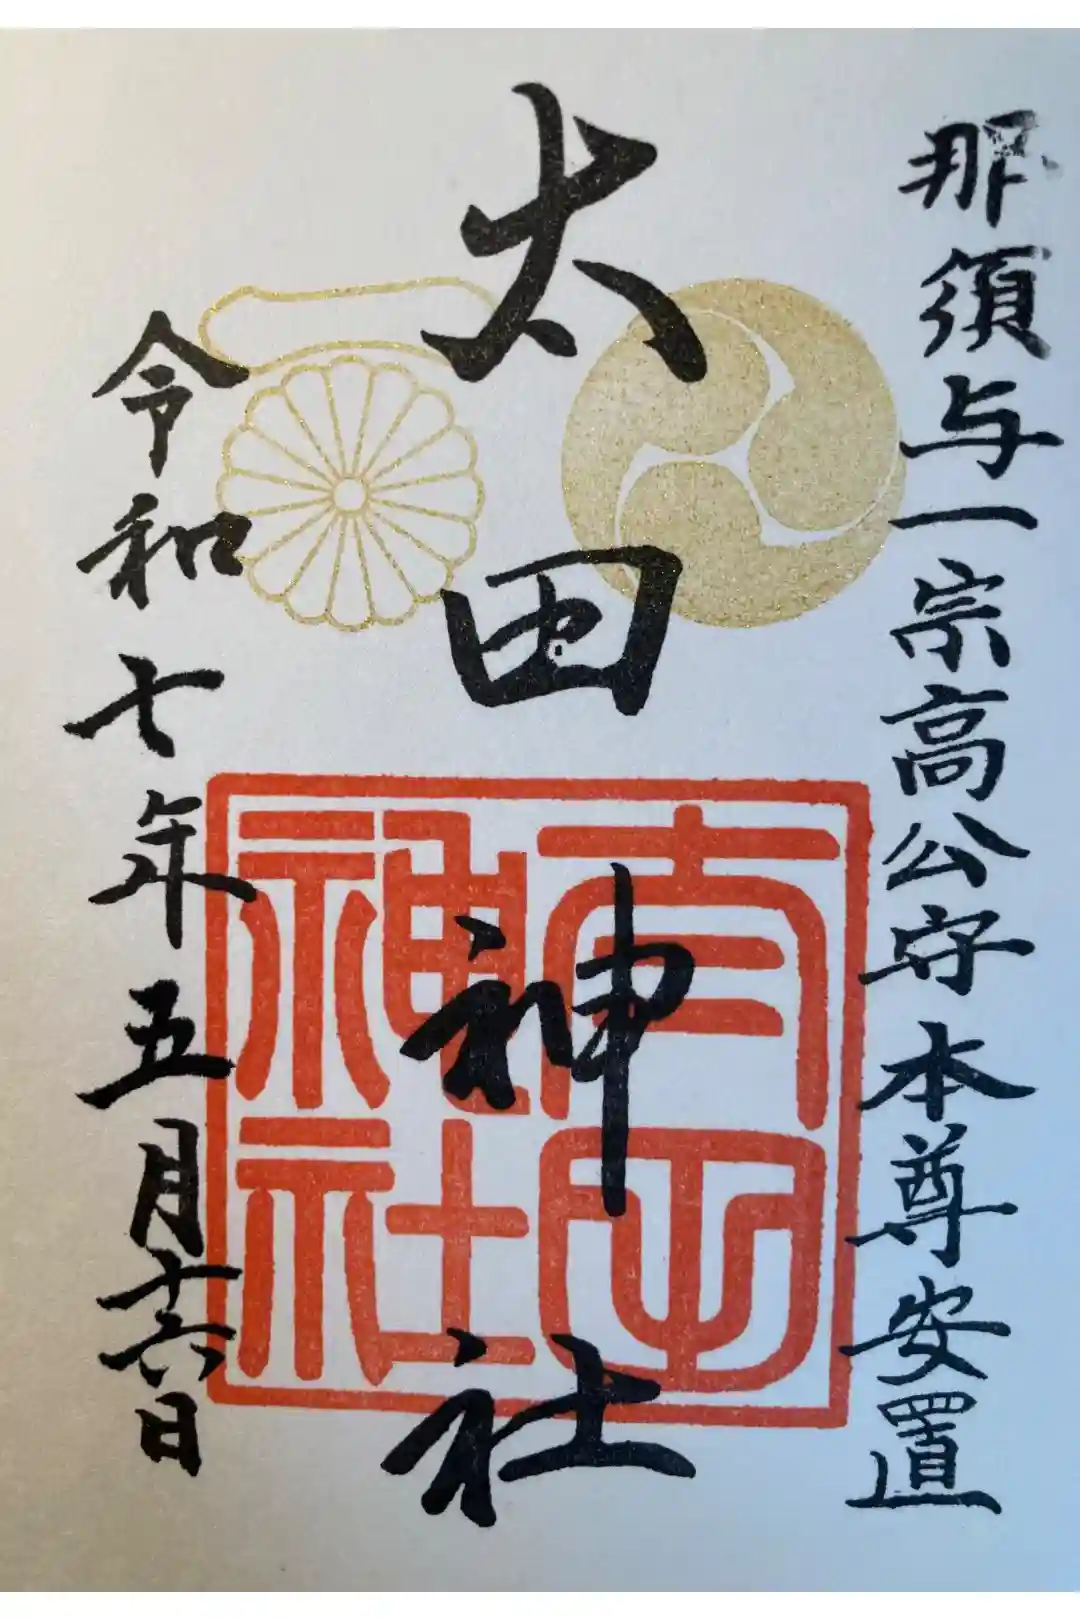 那須与一宗高公守本尊安置
太田神社
神社
令和七年五月十六日